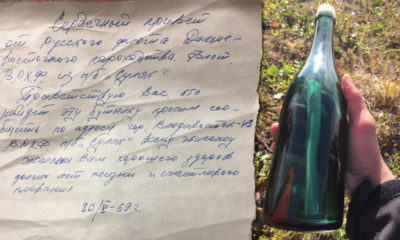 Сердечный привет
от русского флота Дальне-
восточного пароходства Флот.
ВРХФ из п/б „Сулак"
Приветствую Вас, кто
найдет эту бутылку просим соо-
бщить по адресу гор. Владивосток-43
ВРХФ п/б „Сулак" всему экипажу
Желаем Вам хорошего здоровья
долгих лет жизни и счастливого
плавания
20/VI-69 г.